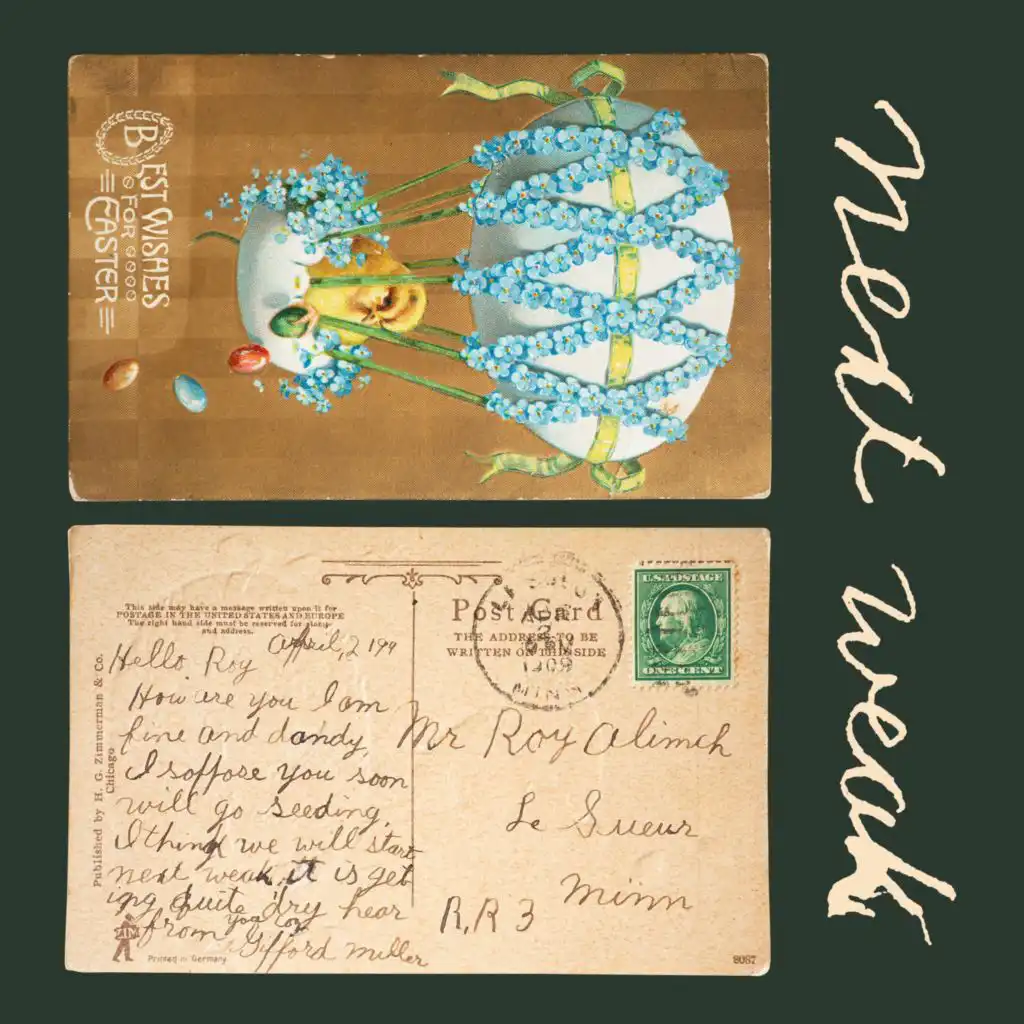 BEST WISHES
FOR
EASTER
Next weak
This side may have a message written upon it for
POSTAGE IN THE UNITED STATES AND EUROPE
The right hand side must be reserved for stamp
and address.
Published by H. G. Zimmerman & Co.
Chicago
April, 2 19
Hello Roy
How are you I am
fine and dandy
I soppose you soon
will go seeding.
I think we will start
next weak, it is get
ing quite dry hear
from you Roy
Gifford Miller
ZIM
Printed in Germany
Post Card
THE ADDRESS TO BE
WRITTEN ON THIS SIDE
APR
2
1909
MINN
U.S. POSTAGE
ONE CENT
Mr Roy Alimch
Le Sueur
Minn
R.R 3